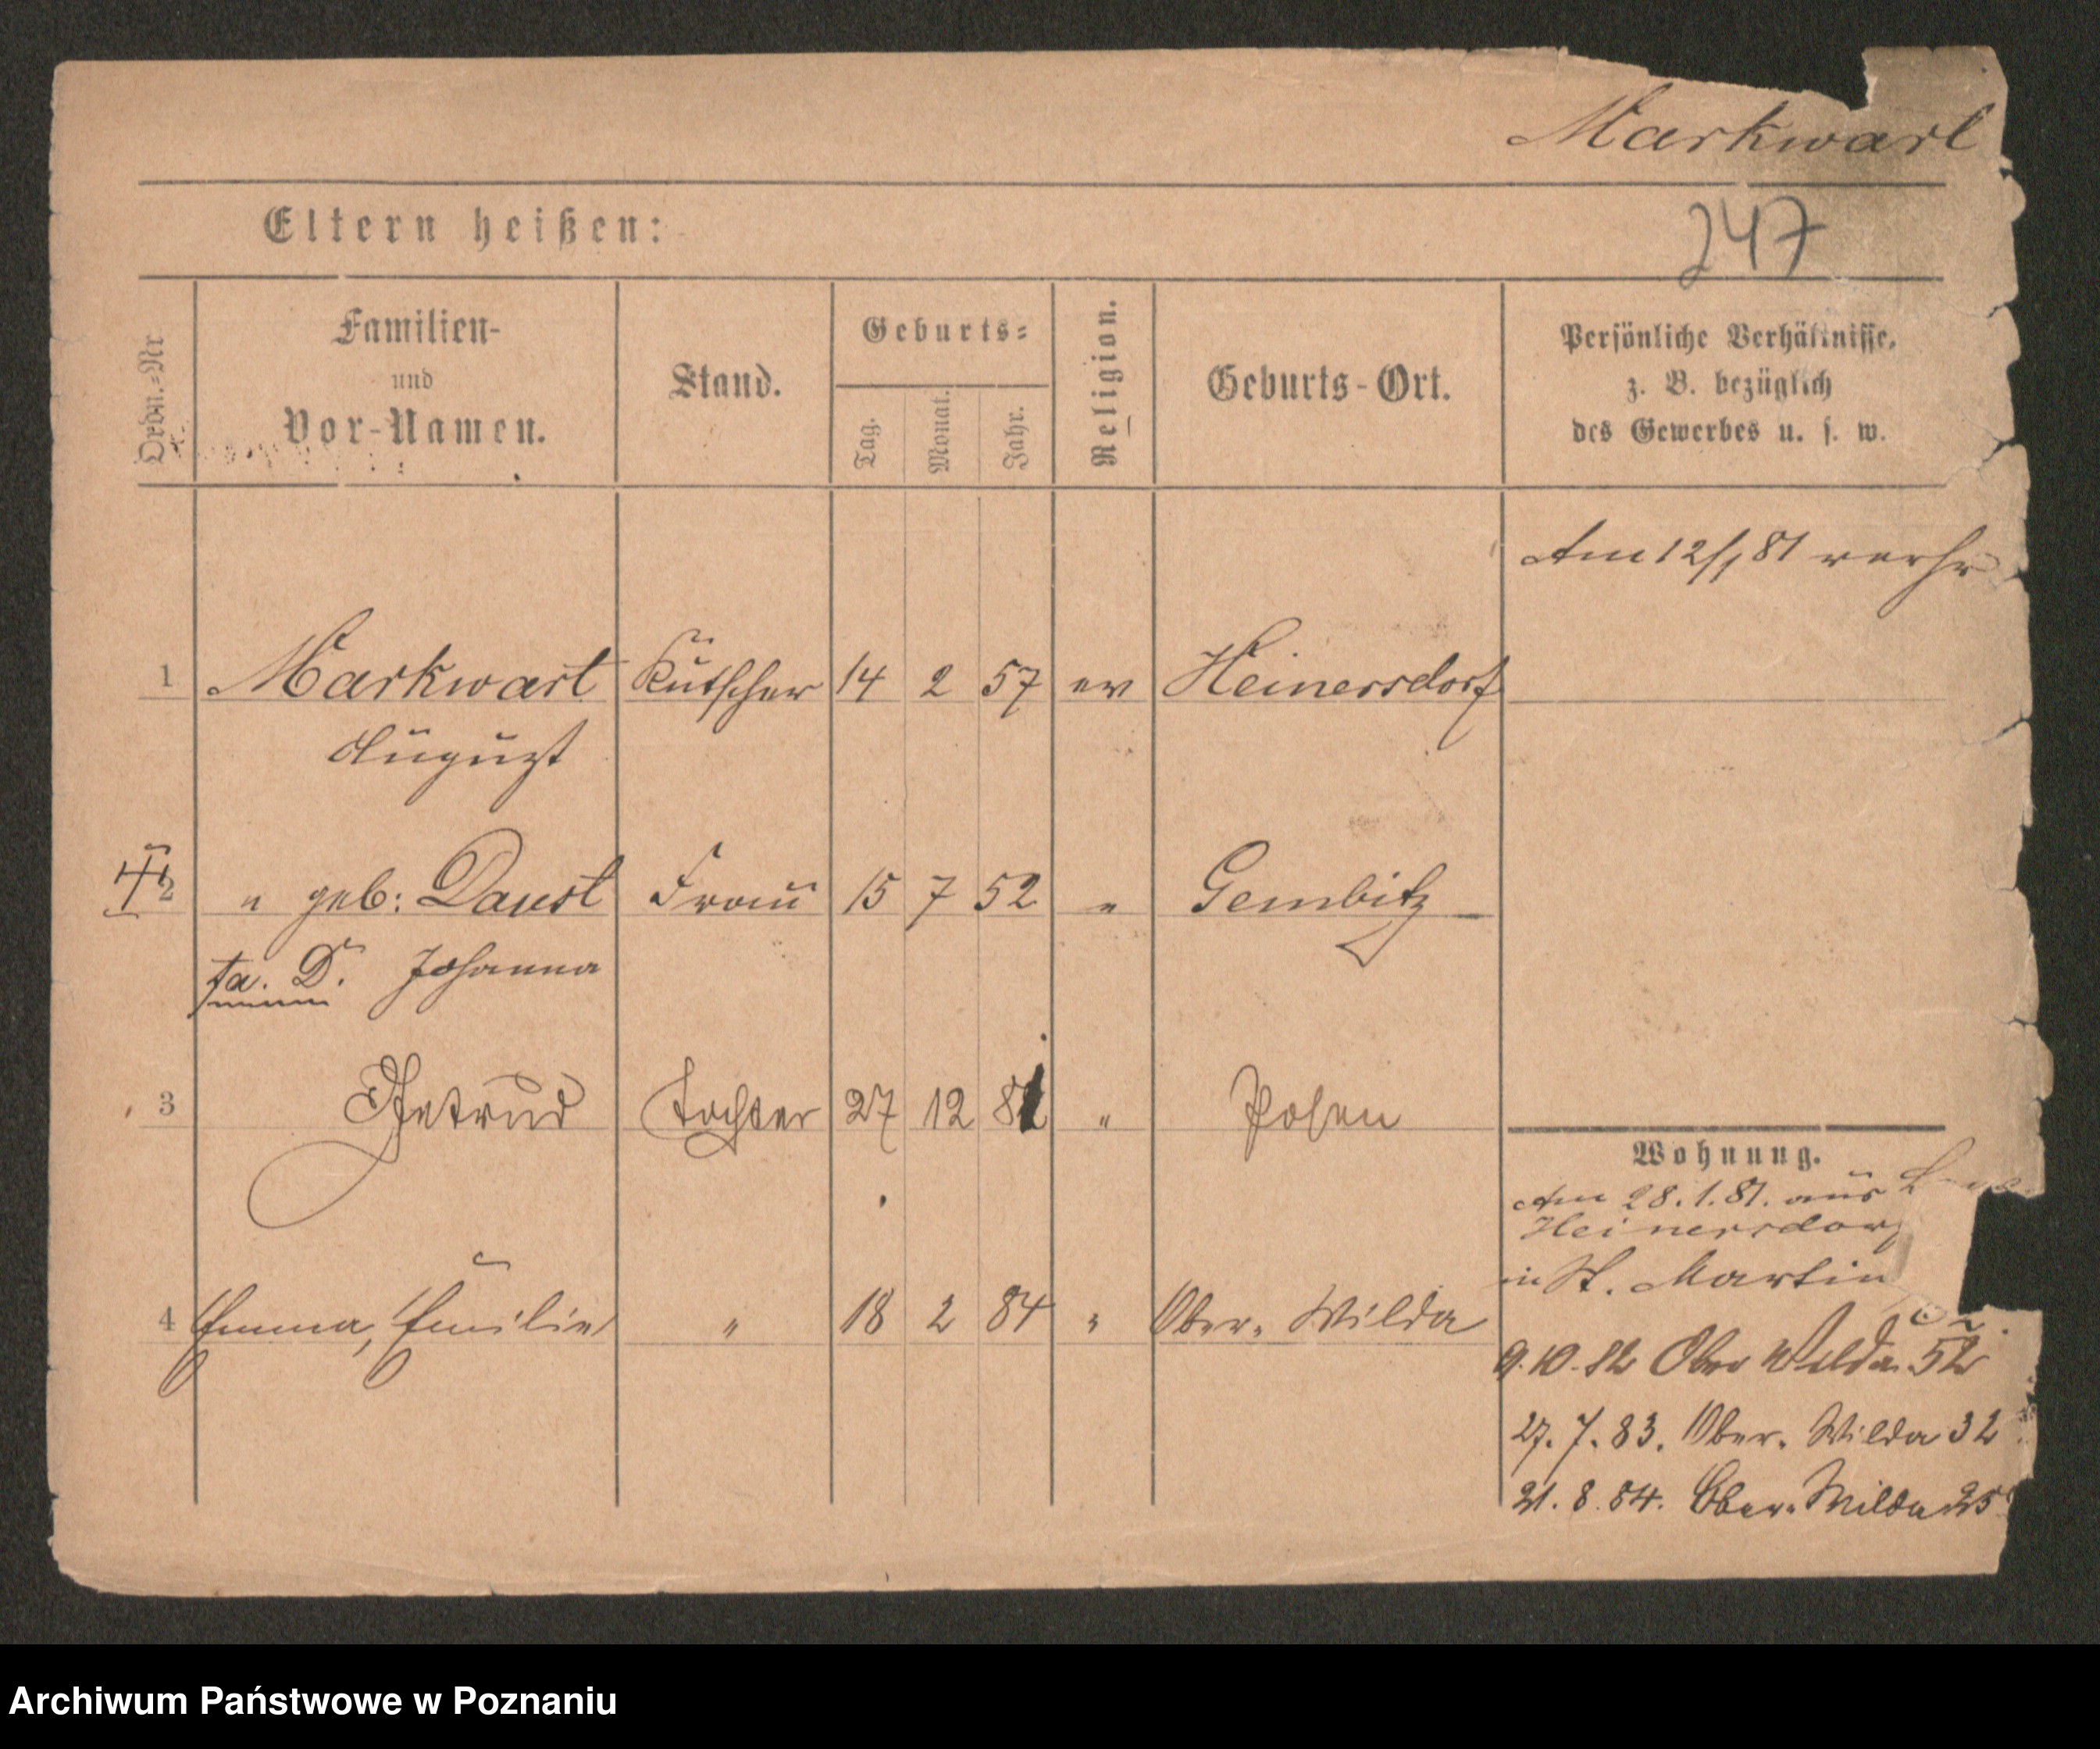 Markwart
Eltern heißen:
247
Ordn.=Nr
Familien-
und
Vor-Namen.
Stand.
Geburts=
Tag.
Monat.
Jahr.
Religion.
Geburts-Ort.
Persönliche Verhältnisse,
z. B. bezüglich
des Gewerbes u. s. w.
Am 12/1 81 verhr
1 Markwart Kutscher 14 2 57 ev Heinersdorf
August
2 " geb: Daust Frau 15 7 52 " Gembitz
fa. D. Johanna
3 Gertrud Tochter 27 12 81 " Posen
Wohnung.
Am 28.1.81. aus
Heinersdorf
in St. Martin
4 Emma, Emilie " 18 2 84 " Ober-Wilda
9.10.82 Ober Wilda 52
27.7.83. Ober-Wilda 32
21.8.84. Ober-Wilda 25
Archiwum Państwowe w Poznaniu